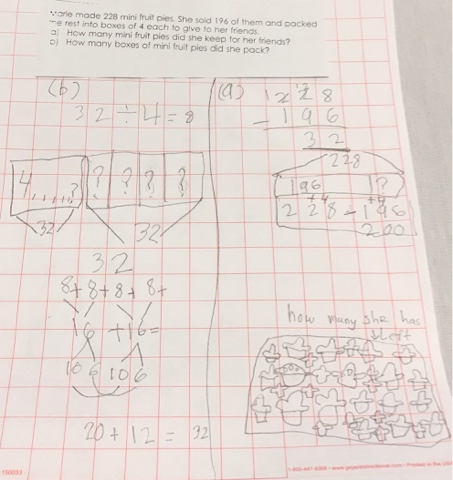 Marie made 228 mini fruit pies. She sold 196 of them and packed
the rest into boxes of 4 each to give to her friends.
a) How many mini fruit pies did she keep for her friends?
b) How many boxes of mini fruit pies did she pack?
(b)
32 ÷ 4 = 8
4,,,,,?
? ? ? ?
32
32
32
8+ 8+ 8+ 8+
16 + 16 =
10 6 10 6
20 + 12 = 32
(a)
228
- 196
32
228
196 ?
228 - 196
+4 +4
200
how many she has
left
150033